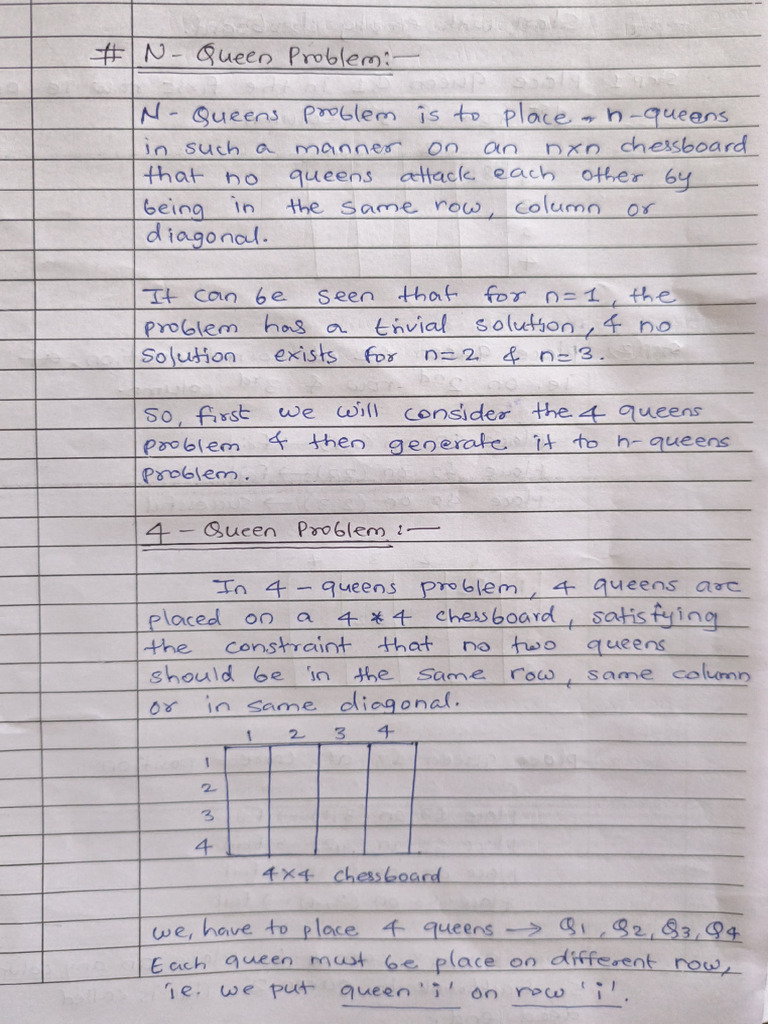 # N - Queen Problem:-
N - Queens problem is to place n-queens
in such a manner on an nxn chessboard
that no queens attack each other by
being in the same row, column or
diagonal.
It can be seen that for n=1, the
problem has a trivial solution, & no
solution exists for n=2 & n=3.
So, first we will consider the 4 queens
problem & then generate it to n-queens
problem.
4 - Queen Problem :-
In 4 - queens problem, 4 queens are
placed on a 4 * 4 chessboard, satisfying
the constraint that no two queens
should be in the same row, same column
or in same diagonal.
1 2 3 4
1
2
3
4
4×4 chessboard
we, have to place 4 queens → Q1, Q2, Q3, Q4
Each queen must be place on different row,
ie. we put queen 'i' on row 'i'.